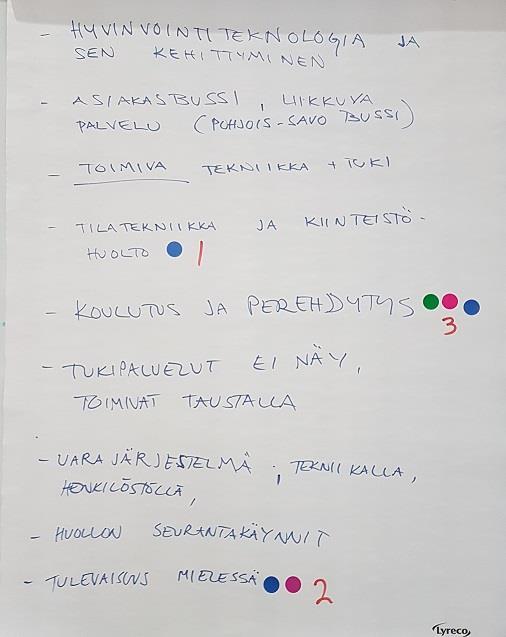 - HYVINVOINTITEKNOLOGIA JA
SEN KEHITTYMINEN
- ASIAKASBUSSI, LIIKKUVA
PALVELU (POHJOIS-SAVO BUSSI)
- TOIMIVA TEKNIIKKA + TUKI
- TILATEKNIIKKA JA KIINTEISTÖ-
HUOLTO 1
- KOULUTUS JA PEREHDYTYS
3
- TUKIPALVELUT EI NÄY,
TOIMIVAT TAUSTALLA
- VARAJÄRJESTELMÄ ; TEKNIIKALLA,
HENKILÖSTÖLLÄ,
- HUOLLON SEURANTAKÄYNNIT
- TULEVAISUUS MIELESSÄ 2
Lyreco